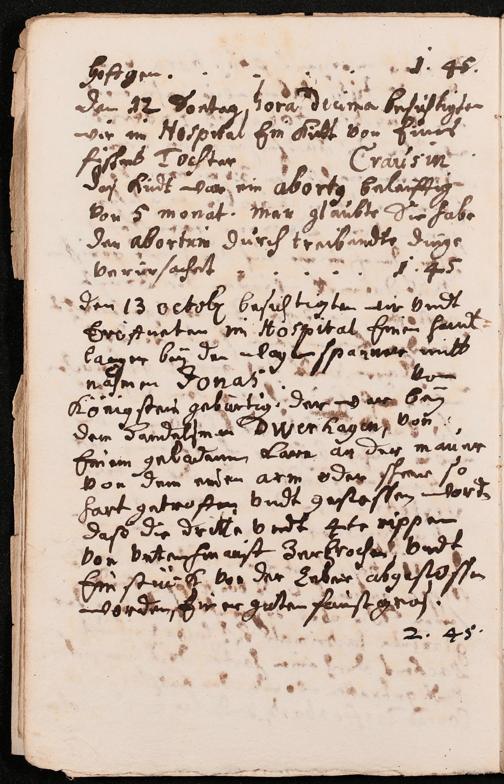 hofftgen. . . . . 1. 45.
den 12 Sontag, hora Decima besichtigten
wir im Hospital Ein Kindt von Eines
fischers Tochter Crausin
daß Kindt war ein abortg beleüffig
von 5 monat. man glaubte Sie habe
den abortum durch treibendte dinge
verursachet . . . . 1. 45
den 13 octobr besichtigten wir undt
Eröffneten im Hospital Einen handt=
langer bey den spanner mitt
nahmen Jonas von
Königstein gebürtig. der war bey
dem handelsman Dwerhagen, von
Einem geladenen karn an der mauer
von dem einen arm oder so
hart getroffen undt gestossen word
daß die dritte undt 4te rippen
von unten zerbrochen, undt
Ein stück von der Leber abgestossen
worden, Einer guten faust groß.
2. 45.